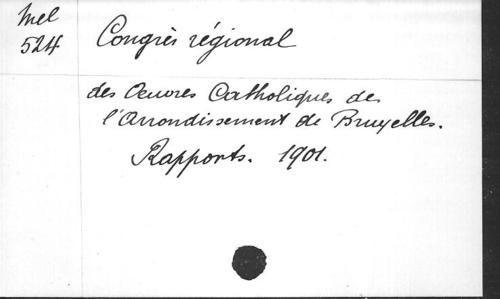 Mel
524
Congrès régional
des Oeuvres Catholiques de
l'Arrondissement de Bruxelles.
Rapports. 1901.